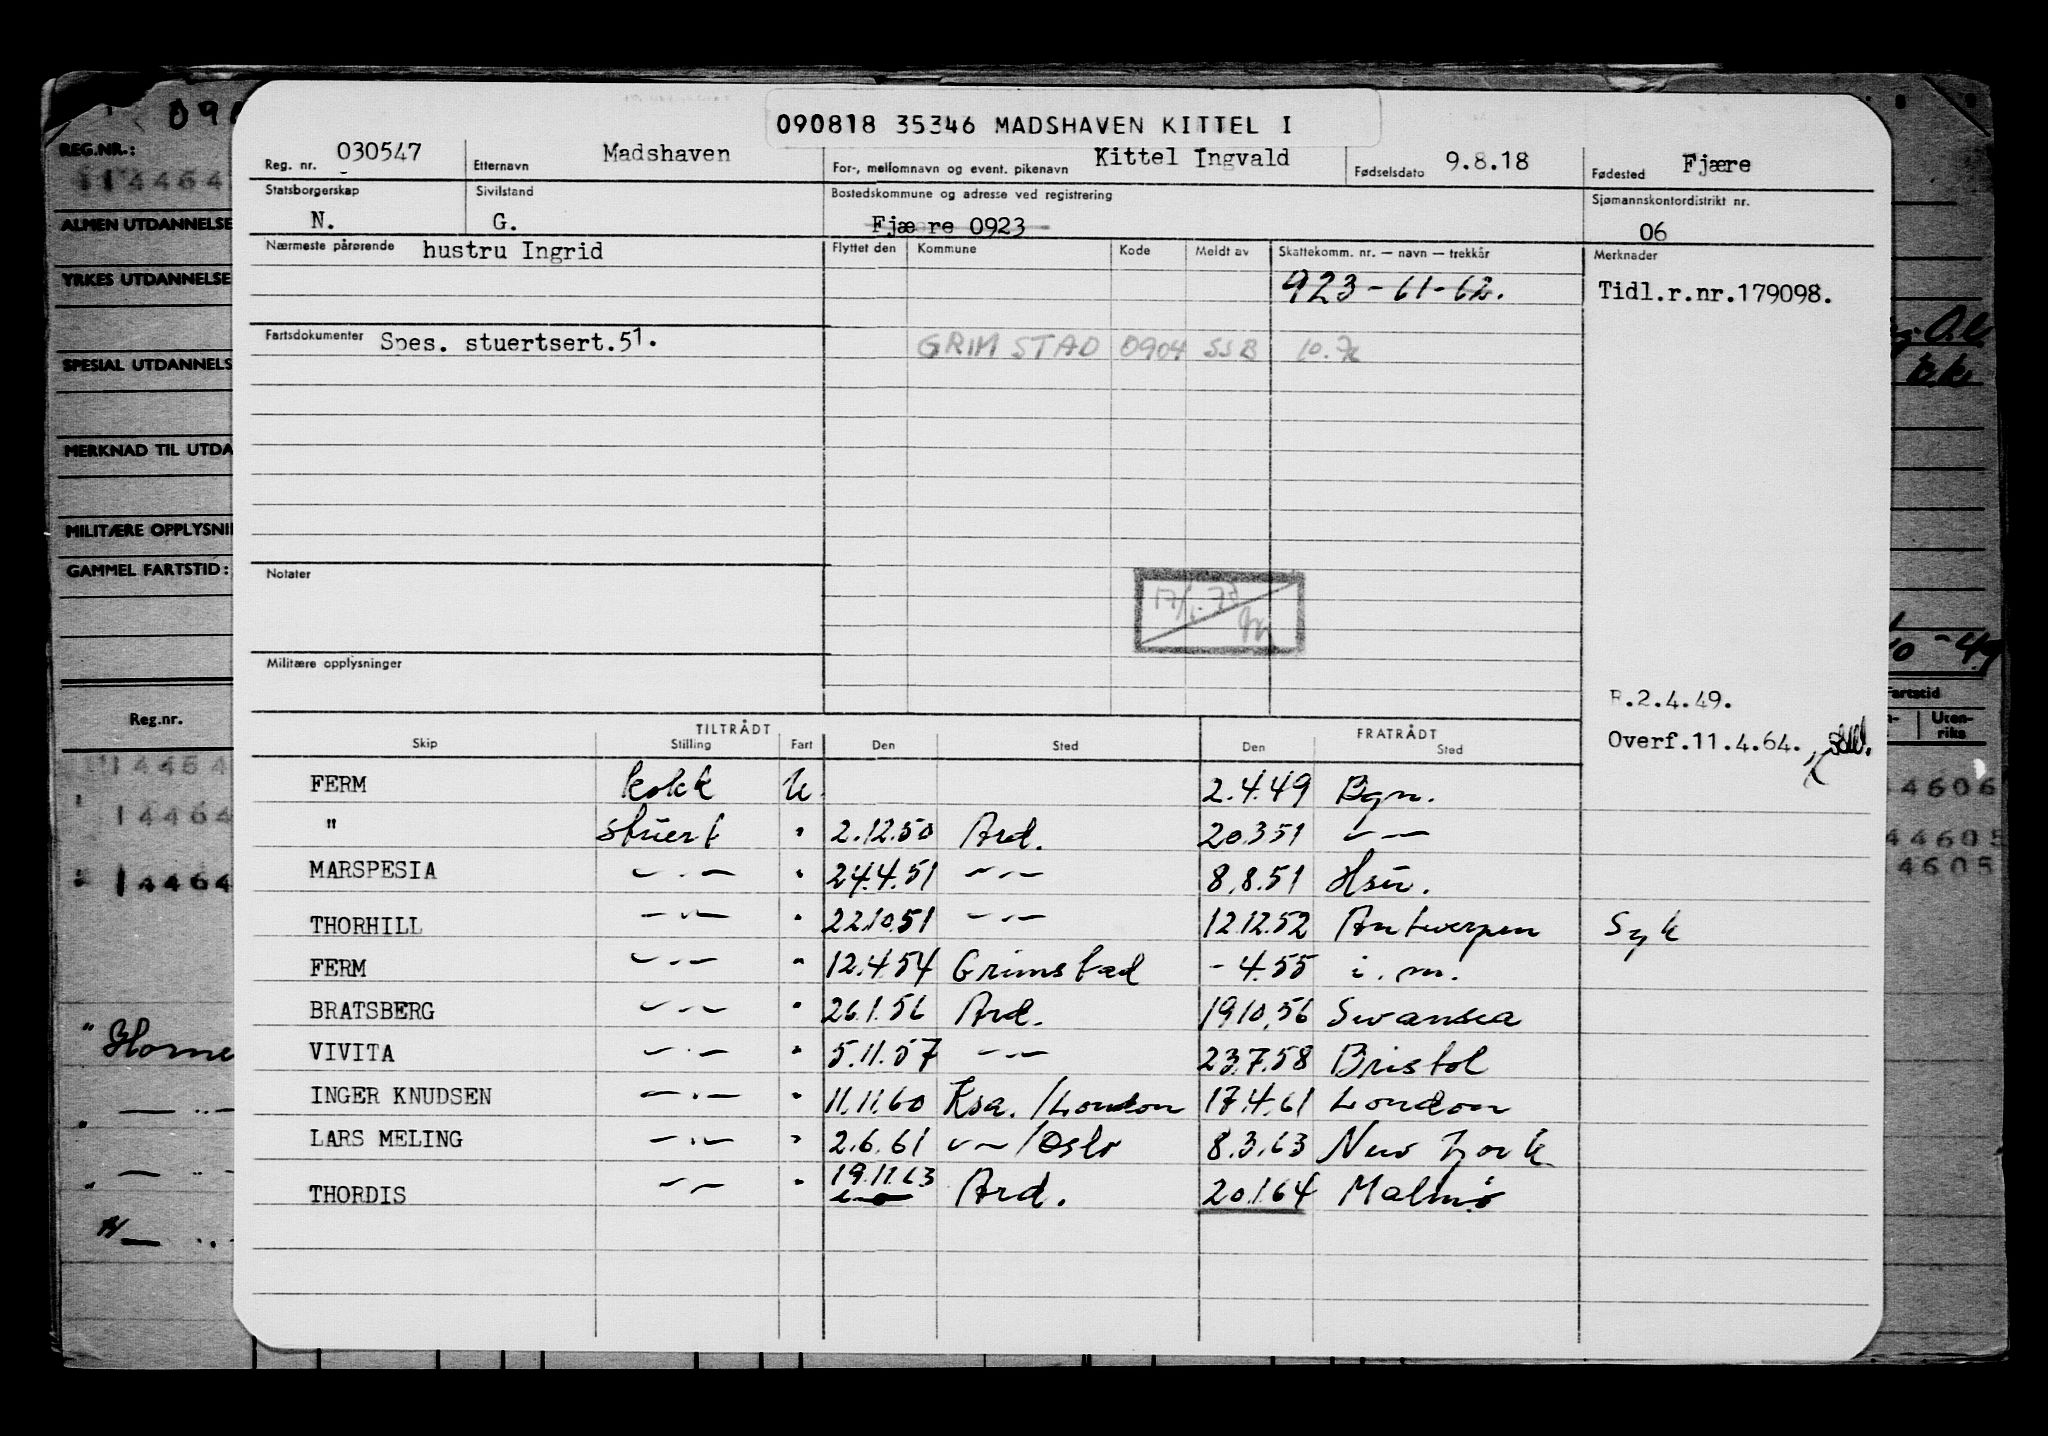 090818 35346 MADSHAVEN KITTEL I
Reg. nr. 030547 Etternavn Madshaven For-, mellomnavn og event. pikenavn Kittel Ingvald Fødselsdato 9.8.18 Fødested Fjære
Statsborgerskap N. Sivilstand G. Bostedskommune og adresse ved registrering Fjære 0923 Sjømannskontordistrikt nr. 06
Nærmeste pårørende hustru Ingrid Flyttet den Kommune Kode Meldt av Skattekomm. nr. — navn — trekkår Merknader
923-61-62.
Tidl.r.nr.179098.
Fartsdokumenter Spes. stuertsert.51. GRIMSTAD 0904 SSB
Notater
Militære opplysninger
R.2.4.49.
Overf.11.4.64.
TILTRÅDT FRATRÅDT
Skip Stilling Fart Den Sted Den Sted
FERM kokk U 2.4.49 Bgn.
" stuert " 2.12.50 Ard. 20.3.51 — —
MARSPESIA — . — " 24.4.51 — . — 8.8.51
THORHILL — . — " 22.10.51 — . — 12.12.52 Antwerpen Syk
FERM — . — " 12.4.54 Grimstad - 4.55 i.m.
BRATSBERG — . — " 26.1.56 Ard. 19.10.56 Swansea
VIVITA — . — " 5.11.57 — . — 23.7.58 Bristol
INGER KNUDSEN — . — " 11.11.60 Ksa./London 17.4.61 London
LARS MELING — . — " 2.6.61 — — / Oslo 8.3.63 New York
THORDIS — — " 19.11.63 Ard. 20.1.64 Malmø
REG.NR.:
ALMEN UTDANNELSE
YRKES UTDANNELSE
SPESIAL UTDANNELS
MERKNAD TIL UTDA
MILITÆRE OPPLYSNI
GAMMEL FARTSTID:
Reg.nr.
Fartstid
Uten-
riks